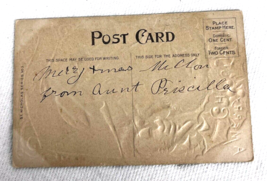 POST CARD
PLACE STAMP HERE
DOMESTIC ONE CENT
FOREIGN TWO CENTS
THIS SPACE MAY BE USED FOR WRITING
THIS SIDE FOR THE ADDRESS ONLY
Merry Xmas
from Aunt Priscilla